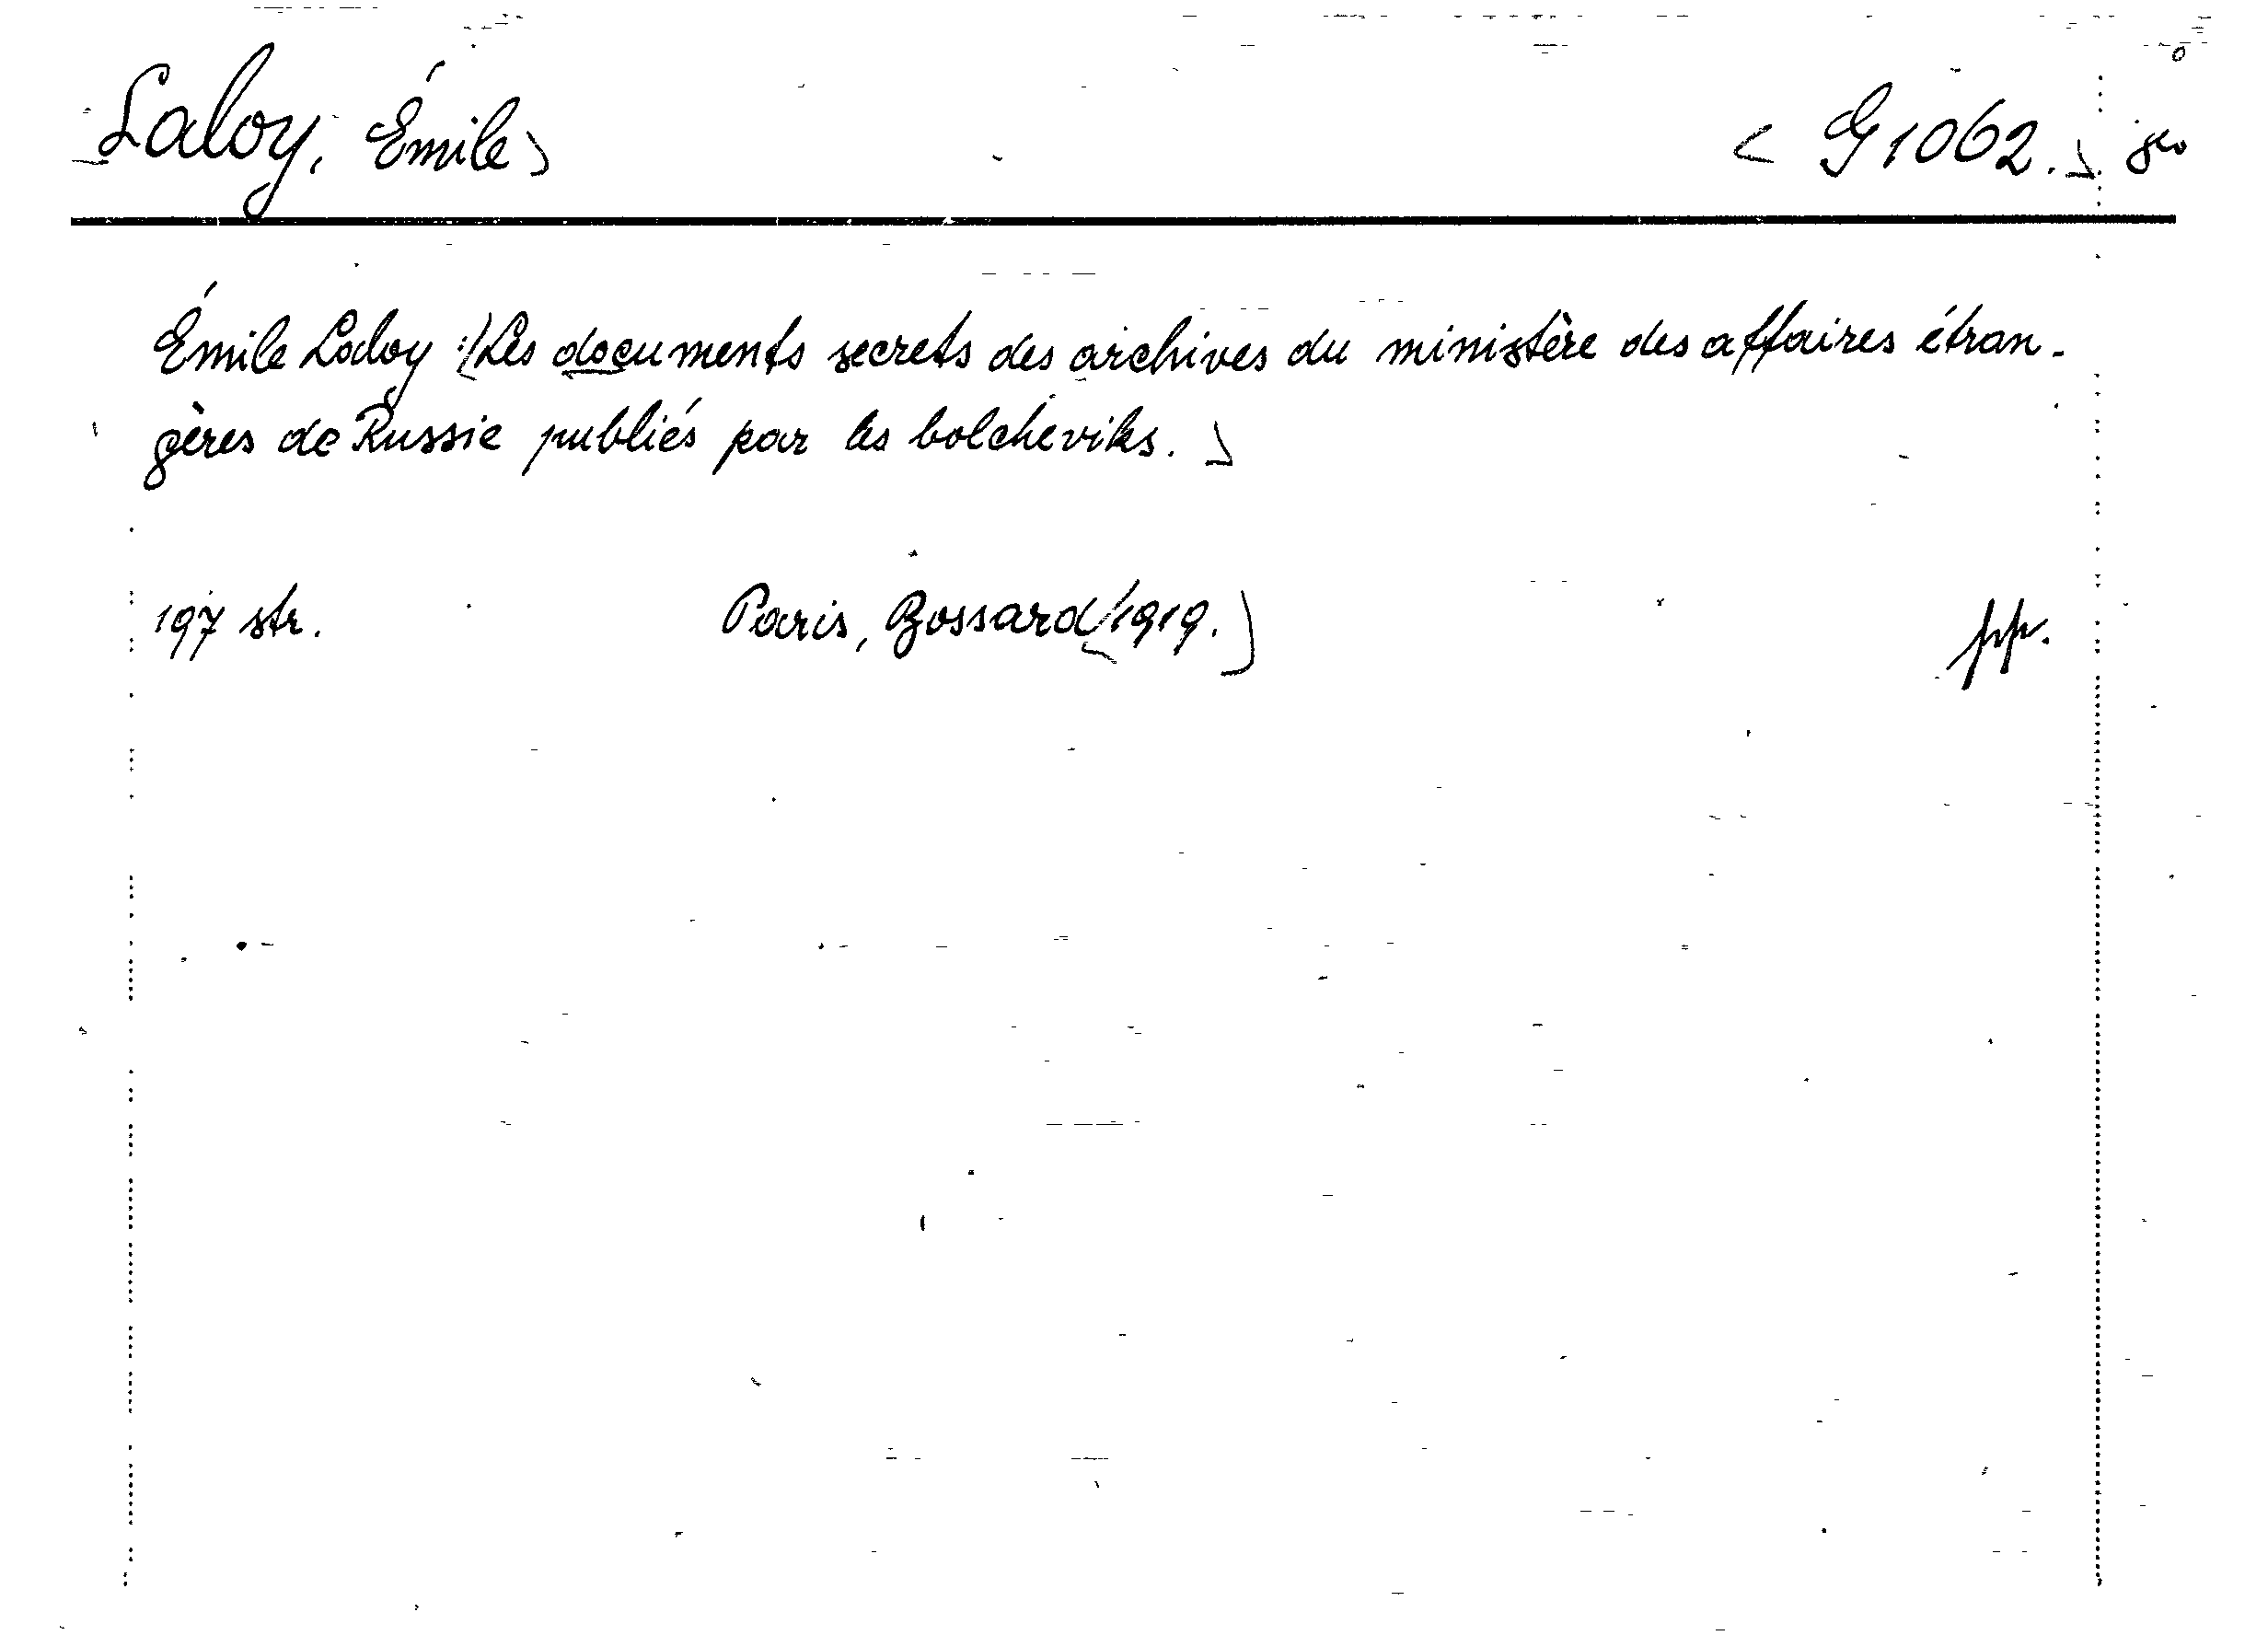 Laloy, Émile G 1062.
Émile Laloy: Les documents secrets des archives du ministère des affaires étran-
gères de Russie publiés par les bolcheviks.
197 str. Paris, Bossard 1919.